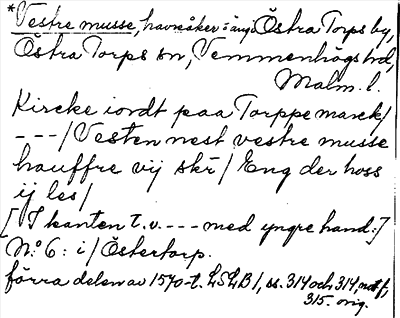 *Vestre musse, havreåker i äng i Östra Torps by,
Östra Torps sn, Vemmenhögs hd,
Malm. l.
Kircke iordt paa Torppe marck/
---/Vesten nest vestre musse
hauffre vij skr/ Eng der hoss
ij les/
[I kanten t.v. --- med yngre hand:]
No 6: i/ Östertorp.
förra delen av 1570-t. LSLB1, ss. 314 och 314,
315. orig.